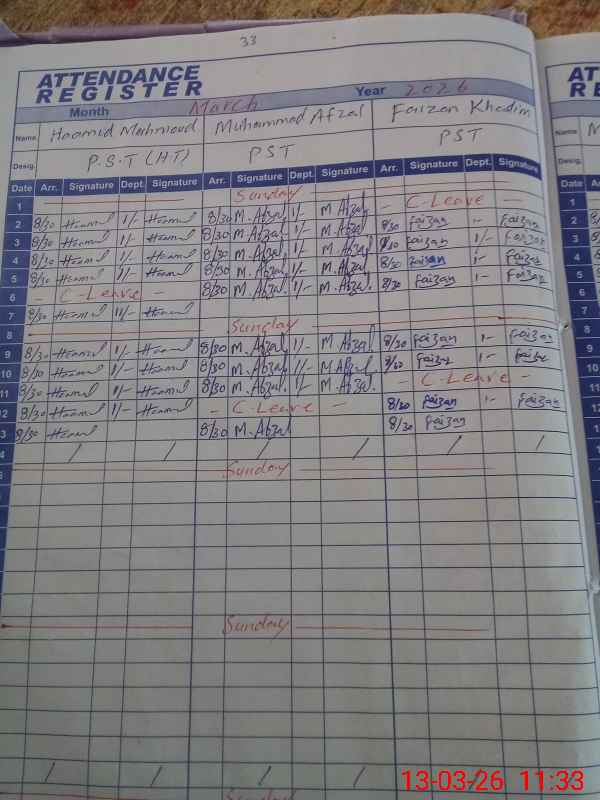 33
ATTENDANCE REGISTER
Month March Year 2026
Name Haamid Mehmood Muhammad Afzal Faizan Khadim
Desig. P.S.T (HT) PST PST
Date Arr. Signature Dept. Signature Arr. Signature Dept. Signature Arr. Signature Dept. Signature
1 Sunday
2 8/30 1/- 8/30 M.Afzal 1/- M Afzal - C-Leave -
3 8/30 1/- 8/30 M.Afzal 1/- M.Afzal 8/30 faizan 1- faizan
4 8/30 1/- 8/30 M.Afzal 1/- M.Afzal 8/30 faizan 1/- faizan
5 8/30 1/- 8/30 M.Afzal 1/- M.Afzal 8/30 faizan 1- faizan
6 - C-Leave - 8/30 M.Afzal 1/- M.Afzal 8/30 faizan 1- faizan
7 8/30
8 Sunday
9 8/30 1/- 8/30 M.Afzal 1/- M Afzal 8/30 faizan 1- faizan
10 8/30 1/- 8/30 M.Afzal 1/- M Afzal 8/30 faizan 1- faizan
11 8/30 1/- 8/30 M.Afzal 1/- M.Afzal - C-Leave -
12 8/30 1/- - C-Leave - 8/30 faizan 1- faizan
3 8/30 8/30 M.Afzal 8/30 faizan
4 / / / / / /
Sunday
Sunday
/ / / / /
Sunday
13-03-26 11:33